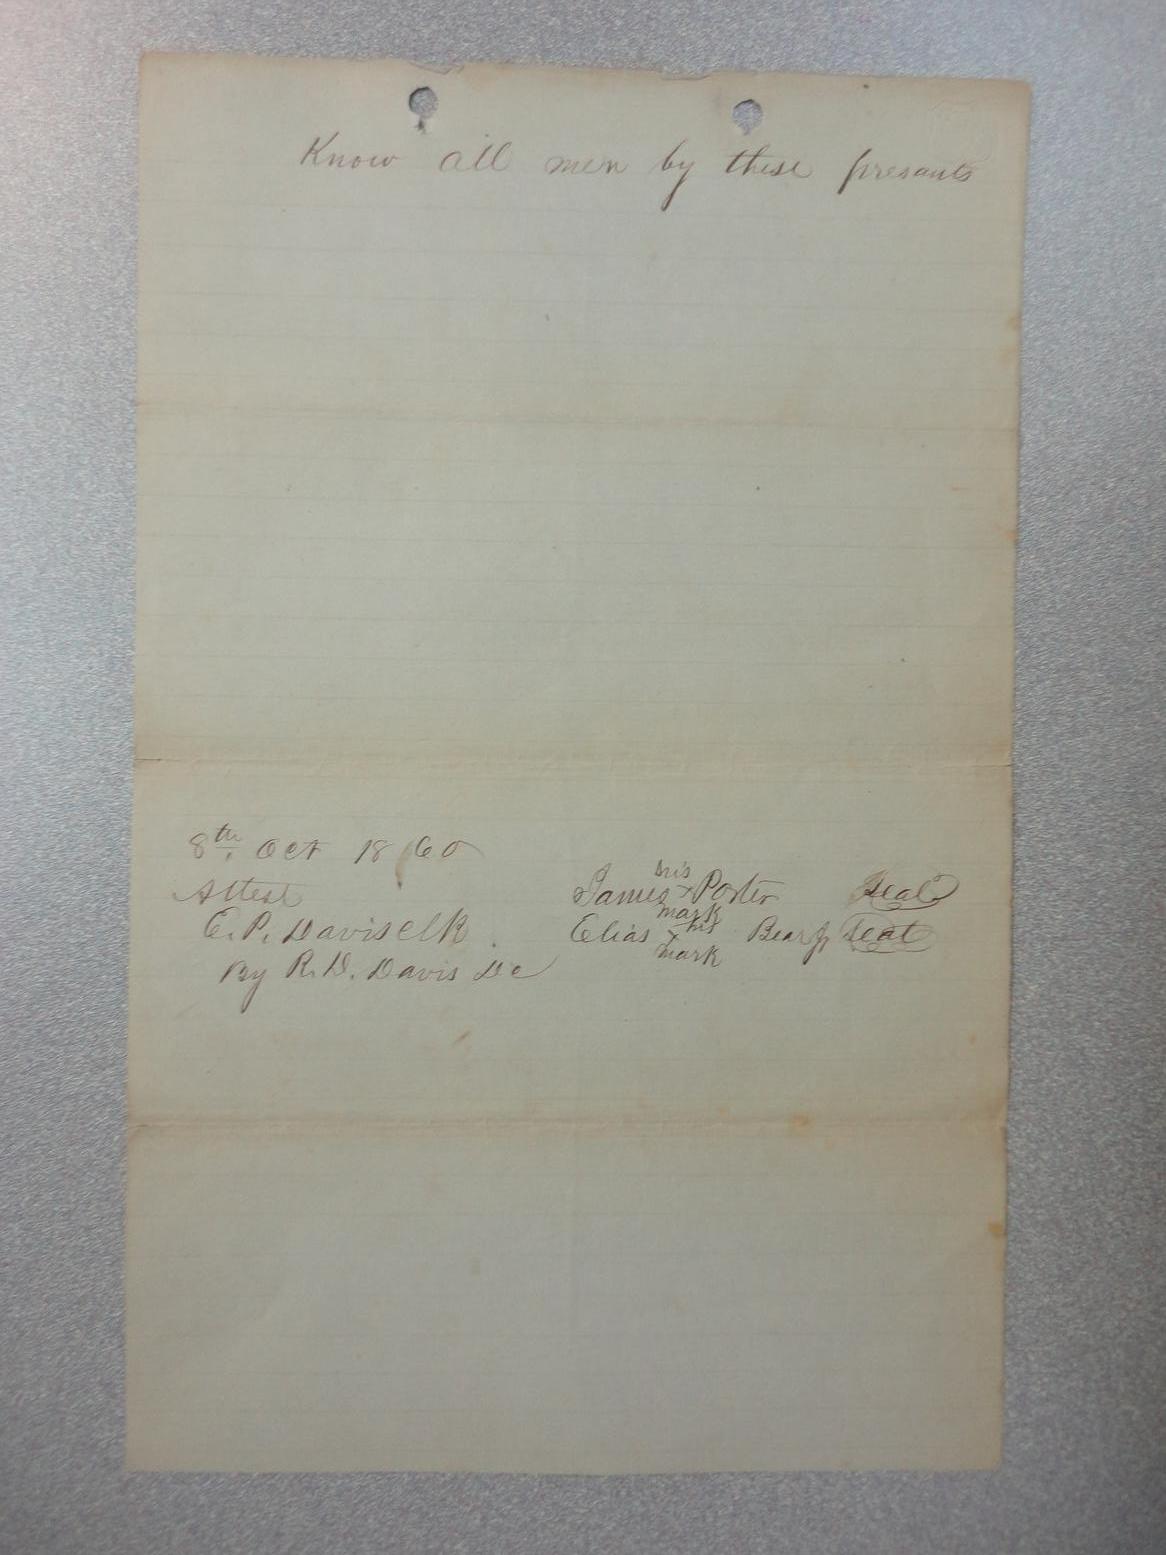 Know all men by these presants
8th Oct 1860
Attest
E. P. Davis clk
By R. D. Davis Dc
his
James x Porter Seal
mark
his
Elias x Seal
mark